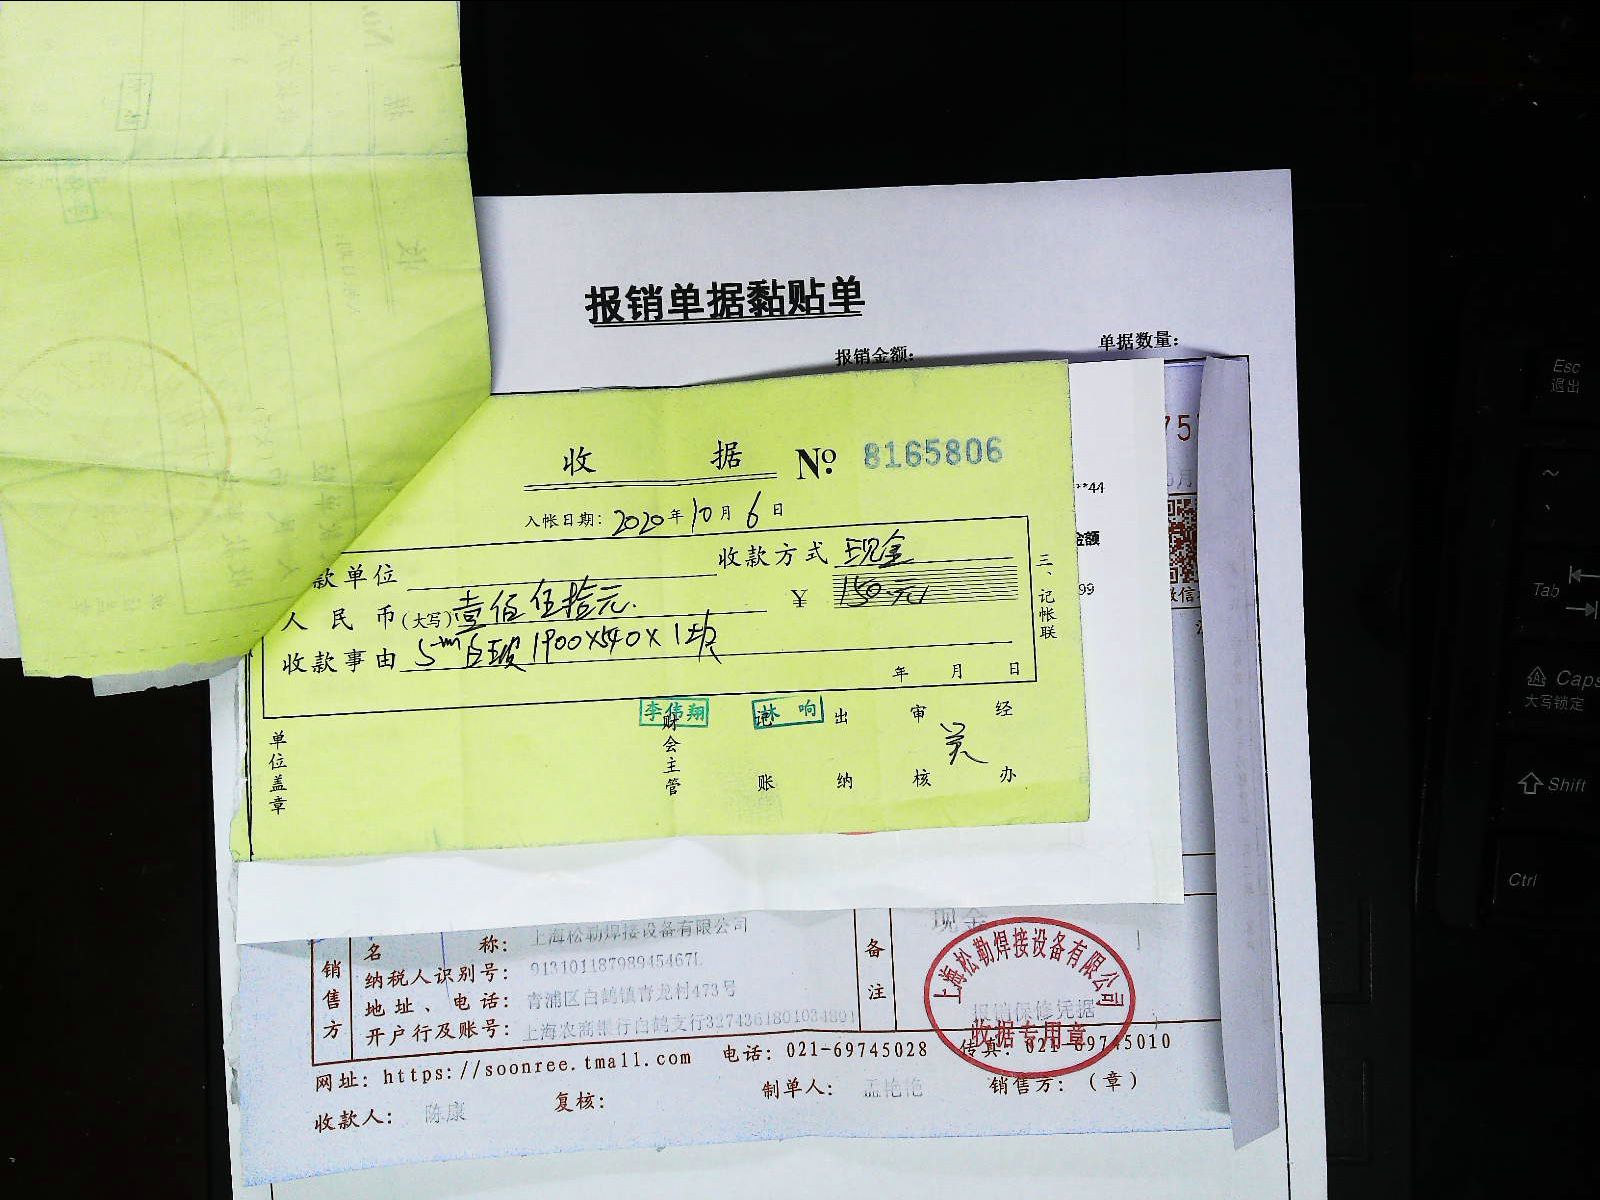 报销单据黏贴单
单据数量：
报销金额：
收 据 No 8165806
入帐日期：2020年10月6日
款单位 收款方式 现金
人民币(大写) 壹佰伍拾元. ¥ 150元
收款事由 5mm白玻 1900×540×1块
年 月 日
三、记帐联
李伟翔
林响
单位盖章 财会主管 记账 出纳 审核 经办
**44
金额
99
75
销售方
名 称： 上海松勒焊接设备有限公司
纳税人识别号： 91310118798945467L
地址、电话： 青浦区白鹤镇青龙村473号
开户行及账号： 上海农商银行白鹤支行32743618010348
备注
现金
报销保修凭据
上海松勒焊接设备有限公司
收据专用章
网址：https://soonree.tmall.com 电话：021-69745028 传真：021-69745010
收款人： 陈康 复核： 制单人： 孟艳艳 销售方：（章）
Esc
退出
~
Tab
Caps
大写锁定
Shift
Ctrl